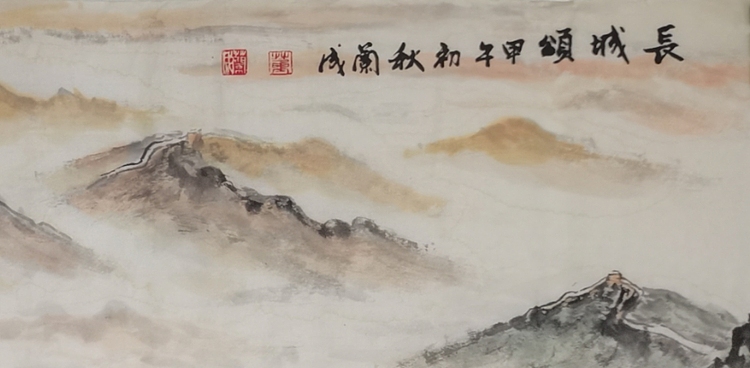 長城頌甲午初秋蘭成